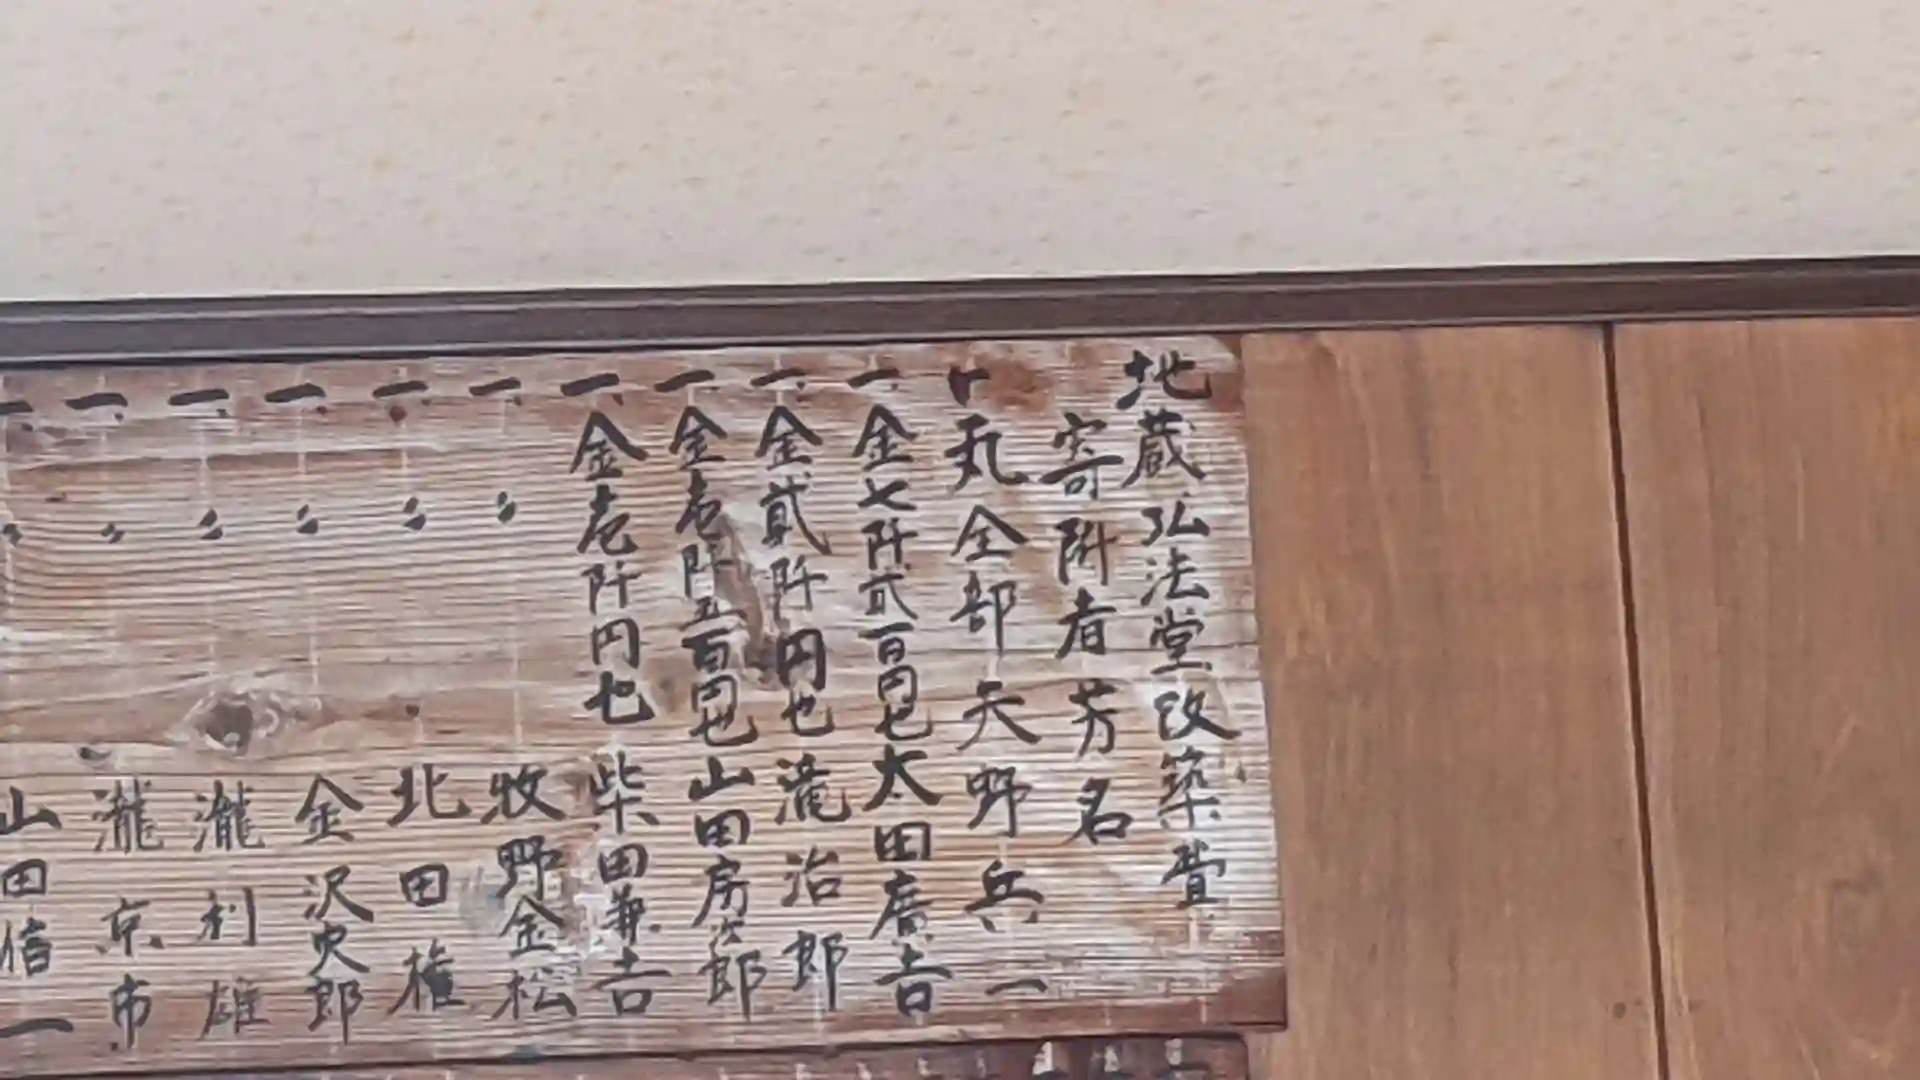 地蔵弘法堂改築費
寄附者芳名
一 瓦全部 天野兵一
一 金七阡貳百円也 太田廣吉
一 金貳阡円也 滝治郎
一 金壱阡五百円也 山田房次郎
一 金壱阡円也 柴田兼吉
一 〃 牧野金松
一 〃 北田権
一 〃 金沢史郎
一 〃 瀧利雄
一 〃 瀧京市
一 〃 山田信一